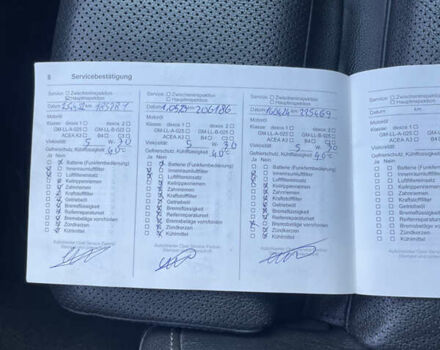 8 Servicebestätigung
Service: Zwischeninspektion
Hauptinspektion
Datum km 185787
Motoröl
Klasse: dexos 1 dexos 2
GM-LL-A-025 GM-LL-B-025
ACEA A3 B4 C3
Viskosität 5 W- 30
Gefrierschutz, Kühlmittel -40°C
Ja Nein
Batterie (Funkfernbedienung)
Innenraumluftfilter
Luftfiltereinsatz
Keilrippenriemen
Zahnriemen
Kraftstofffilter
Getriebeöl
Bremsflüssigkeit
Reifenreparaturset
Bremsbeläge vorn/hinten
Zündkerzen
Kühlmittel
Service: Zwischeninspektion
Hauptinspektion
Datum km 206186
Motoröl
Klasse: dexos 1 dexos 2
GM-LL-A-025 GM-LL-B-025
ACEA A3 B4 C3
Viskosität 5 W- 30
Gefrierschutz, Kühlmittel 40°C
Ja Nein
Batterie (Funkfernbedienung)
Innenraumluftfilter
Luftfiltereinsatz
Keilrippenriemen
Zahnriemen
Kraftstofffilter
Getriebeöl
Bremsflüssigkeit
Reifenreparaturset
Bremsbeläge vorn/hinten
Zündkerzen
Kühlmittel
Service: Zwischeninspektion
Hauptinspektion
Datum km 225469
Motoröl
Klasse: dexos 1 dexos 2
GM-LL-A-025 GM-LL-B-025
ACEA A3 B4 C3
Viskosität 5 W- 30
Gefrierschutz, Kühlmittel 40°C
Ja Nein
Batterie (Funkfernbedienung)
Innenraumluftfilter
Luftfiltereinsatz
Keilrippenriemen
Zahnriemen
Kraftstofffilter
Getriebeöl
Bremsflüssigkeit
Reifenreparaturset
Bremsbeläge vorn/hinten
Zündkerzen
Kühlmittel
Service:
Datum
Motoröl
Klasse: dexos 1
GM-LL-A-025
ACEA A3
Viskosität
Gefrierschutz, Kühlmittel
Ja Nein
Batterie
Innenraumluftfilter
Luftfiltereinsatz
Keilrippenriemen
Zahnriemen
Kraftstofffilter
Getriebeöl
Bremsflüssigkeit
Bremsbeläge
Zündkerzen
Kühlmittel